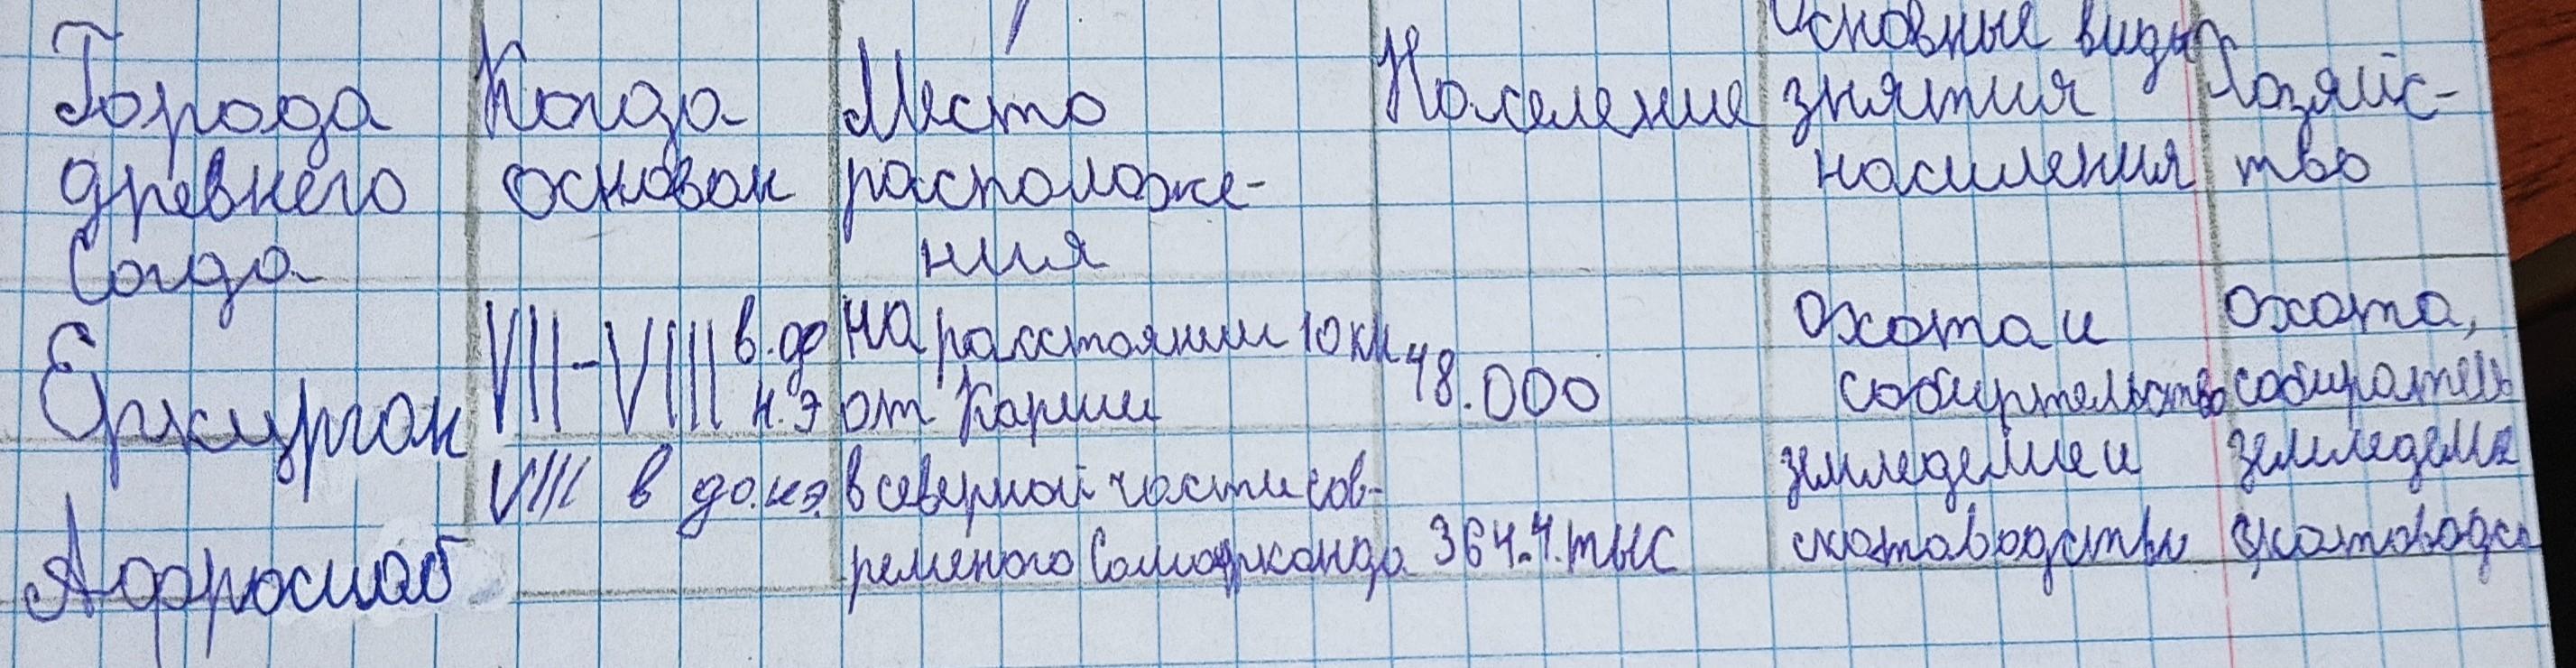 Города
древнего
Согда
Когда
основан
Место
расположе-
ния
Население
Основные виды
знятия
насиления
Хозяйс-
тво
Еркурган
VII-VIII в.до
н.э
на расстоянии 10 км
от Карши
48.000
охота и
собиртельство
охота,
собиратель
Афросиаб
VIII в до.нэ.
в северной части сов-
ременого Самарканда
364.4.тыс
земледелие и
скотоводства
земледелия
скотоводс